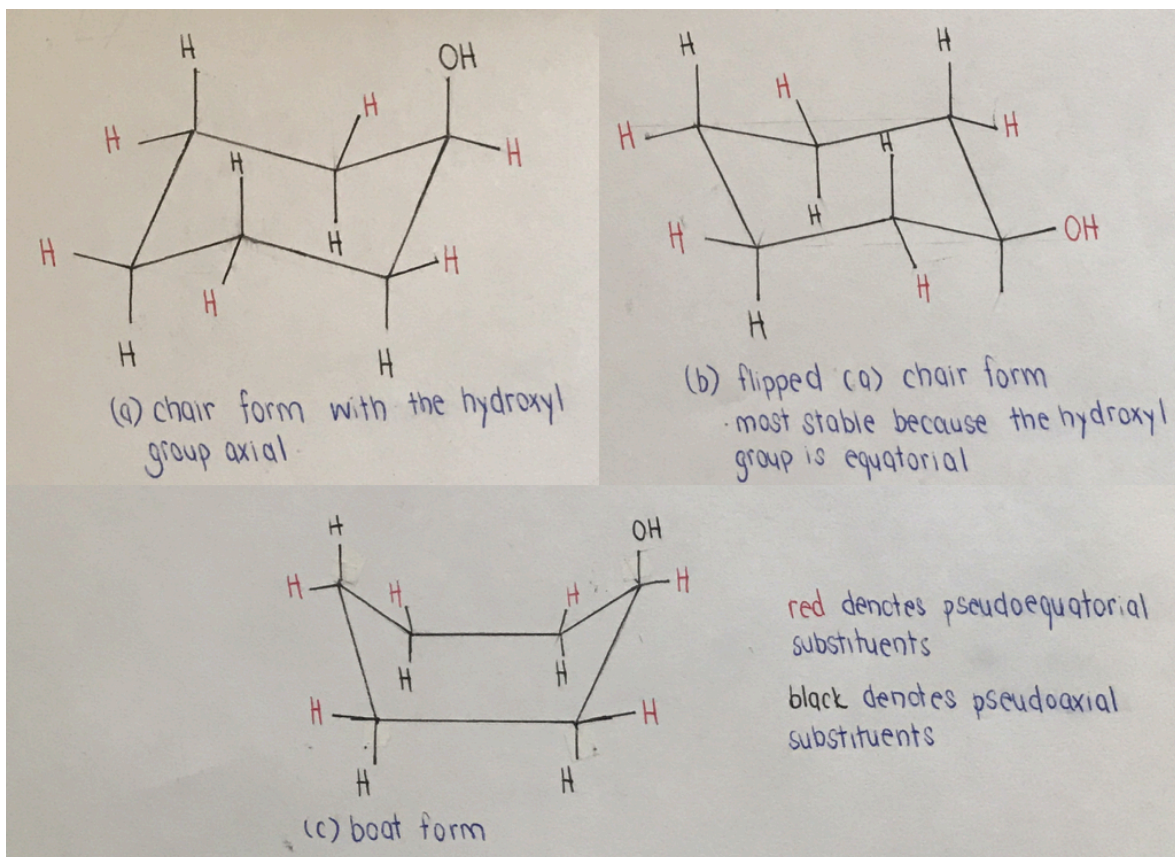 H
OH
H
H
H
H
H
H
H
H
H
H
H
(a) chair form with the hydroxyl
group axial
H
H
H
H
H
H
H
H
OH
H
H
(b) flipped (a) chair form
· most stable because the hydroxyl
group is equatorial
H
OH
H
H
H
H
H
H
H
H
H
H
(c) boat form
red denotes pseudoequatorial
substituents
black denotes pseudoaxial
substituents